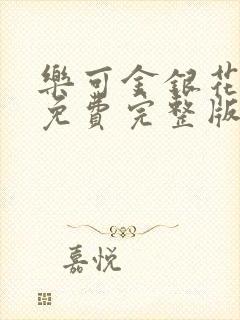 樂可金銀花
免費完整版
嘉悅